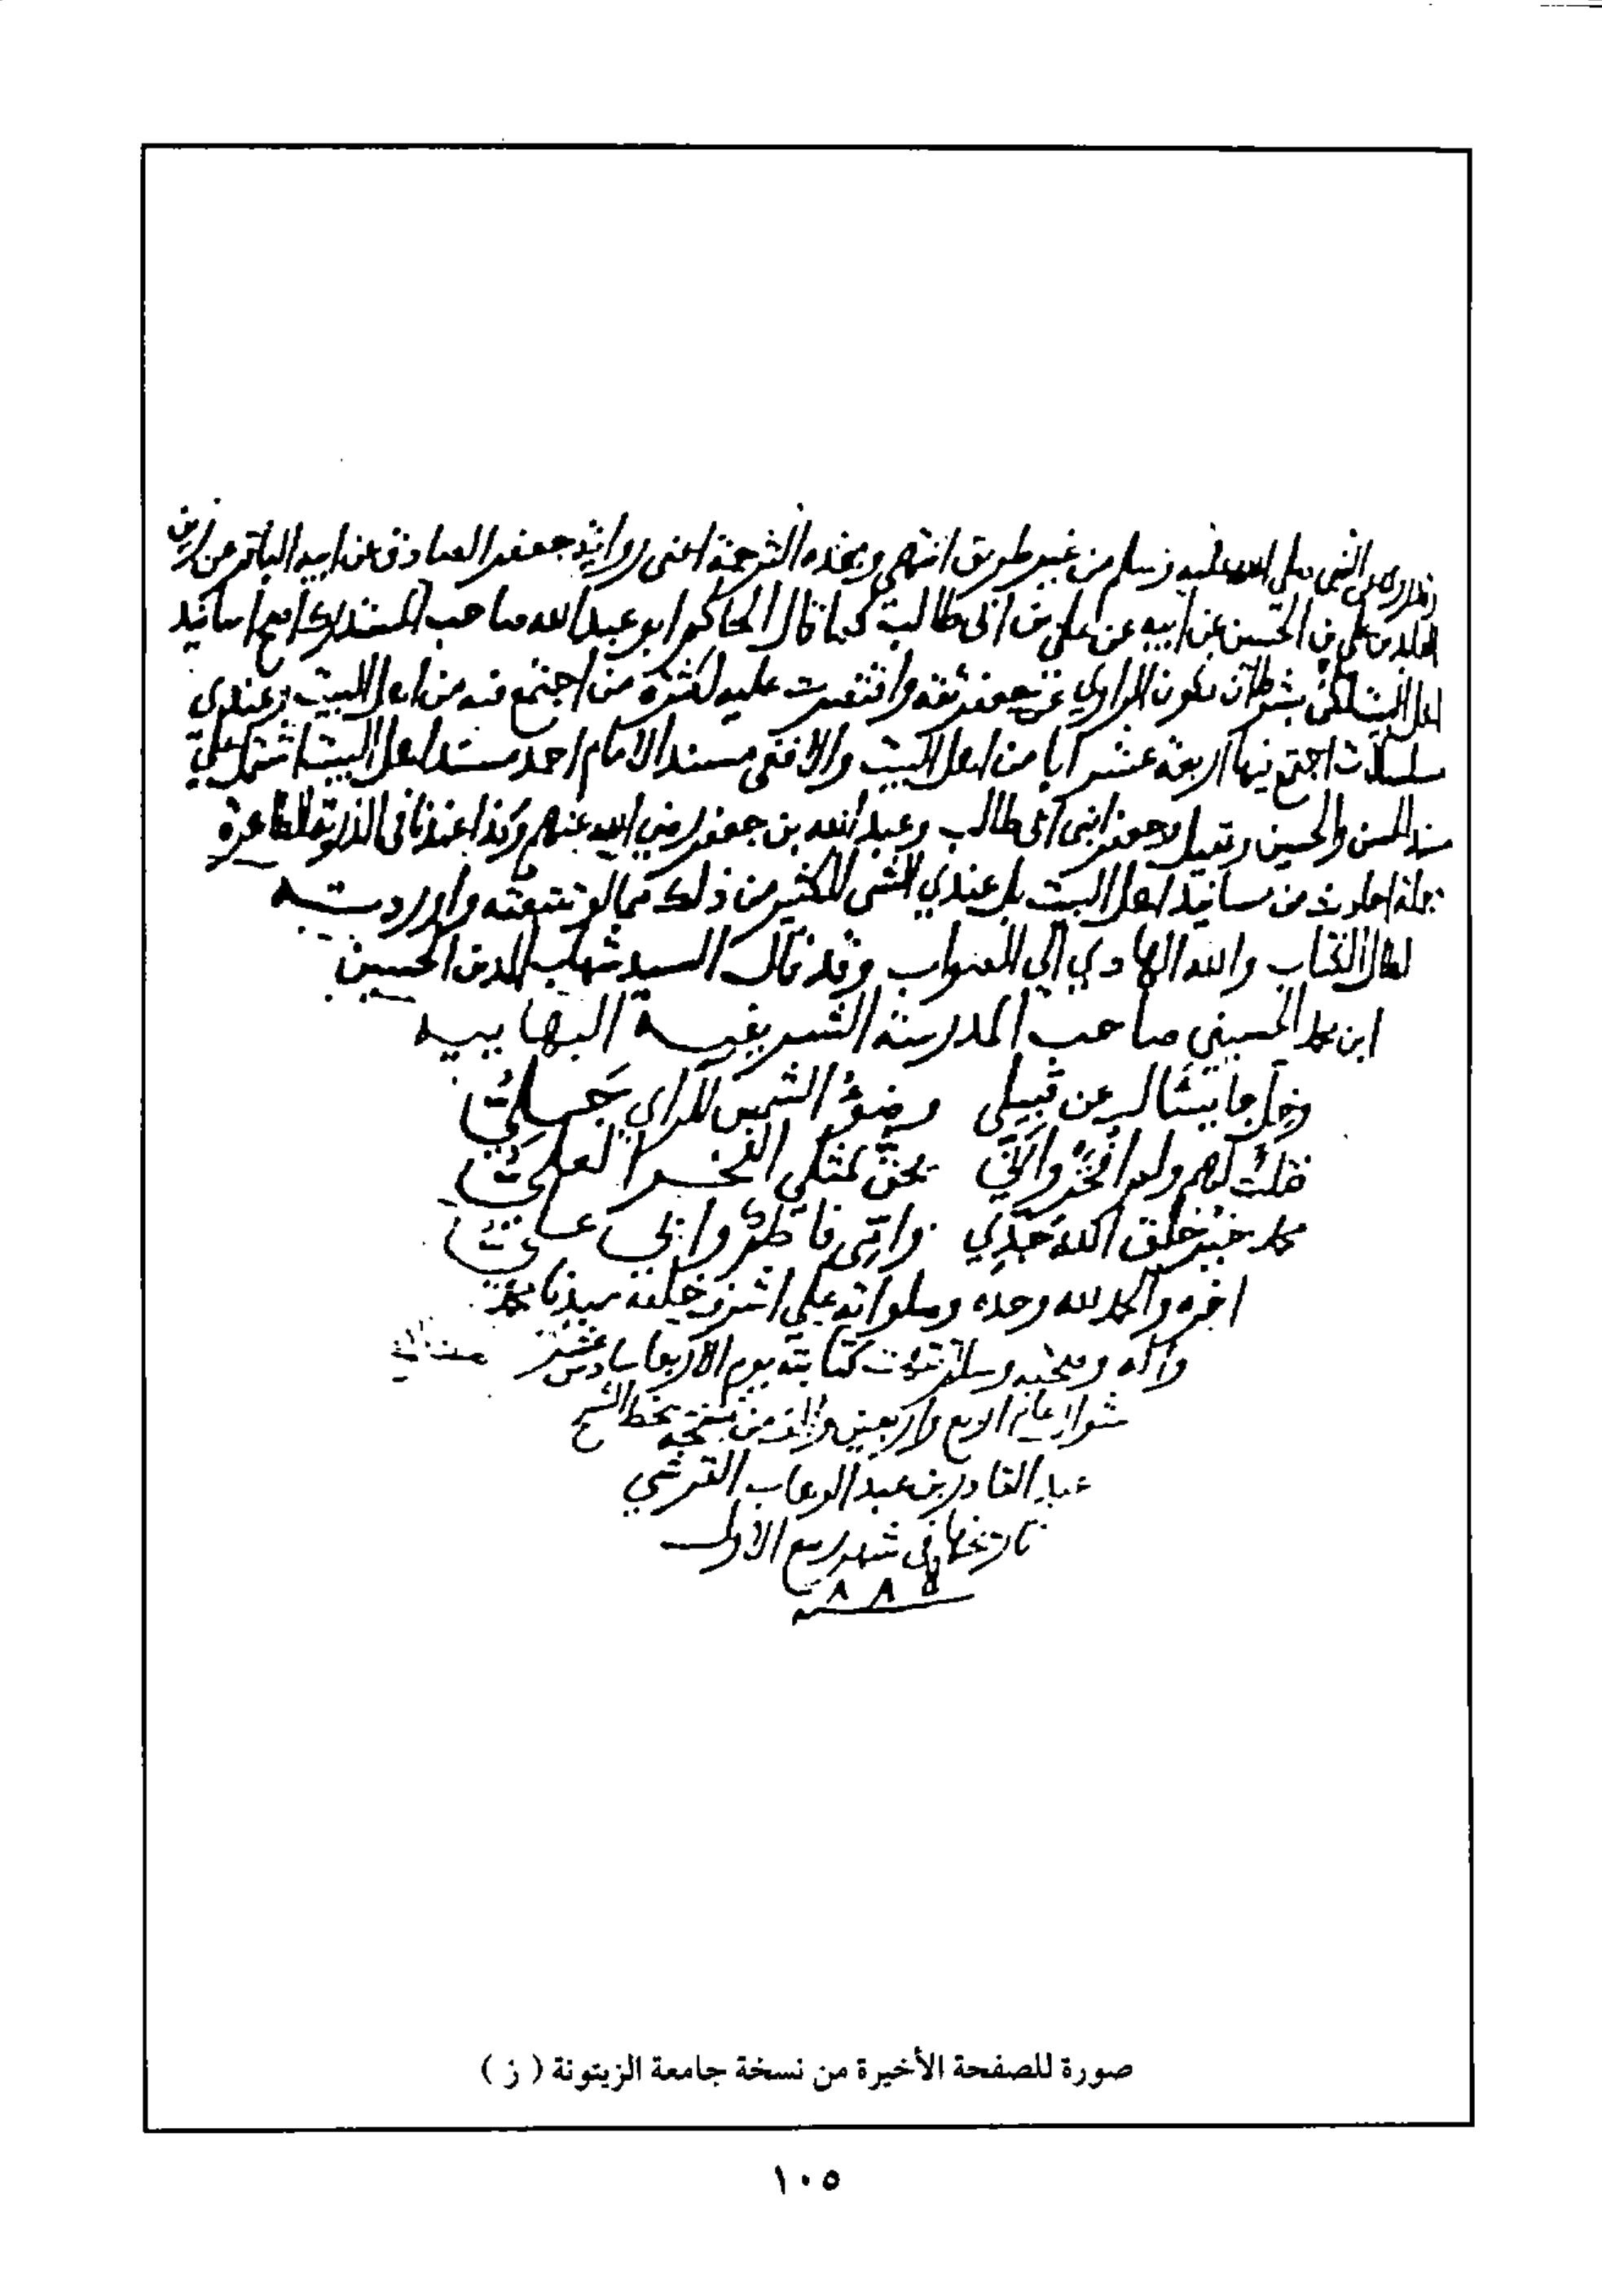 النبي صلى الله عليه وسلم من غير طريق انتهى وبهذه الترجمة اعني رواية جعفر الصادق عن ابيه الباقر عن زين
بن الحسين عن ابيه عن علي بن ابي طالب كما قال الحاكم ابو عبد الله صاحب المستدرك اصح اسانيد
اهل البيت لكن بشرط ان يكون الراوي عن جعفر ثقة واقتصرت عليه لكثرة من اجتمع فيه من اهل البيت وعندي
اجتمع فيها اربعة عشر ابا من اهل البيت والا ففي مسند الامام احمد مسند اهل البيت اشتمل على
مسند الحسن والحسين وعقيل وجعفر ابني ابي طالب وعبد الله بن جعفر رضي الله عنهم وكذا عندنا في الذرية الطاهرة
جملة احاديث من مسانيد اهل البيت بل عندي الشي الكثير من ذلك مما لو تتبعته واوردته
لطال الكتاب والله الهادي الى الصواب وقد قال السيد شهاب الدين الحسين
ابن محمد الحسيني صاحب المدرسة الشريفية البهاييه
وخل جا يسال عن قبيلي وضوء الشمس للراي جلي
فقلت لهم ولم افخر واني يحق لمثلي الفخر العلي
محمد خير خلق الله جدي وامي فاطم وابي علي
اخره والحمد لله وحده وصلواته على اشرف خلقه سيدنا محمد
واله وصحبه وسلم تمت كتابته يوم الاربعا سادس عشر
شوال عام اربع واربعين والف من نسخة بخط الشيخ
عبد القادر بن عبد الوهاب القرشي
تاريخها في شهر ربيع الاول
٨٨٥
صورة للصفحة الأخيرة من نسخة جامعة الزيتونة ( ز )
١٠٥